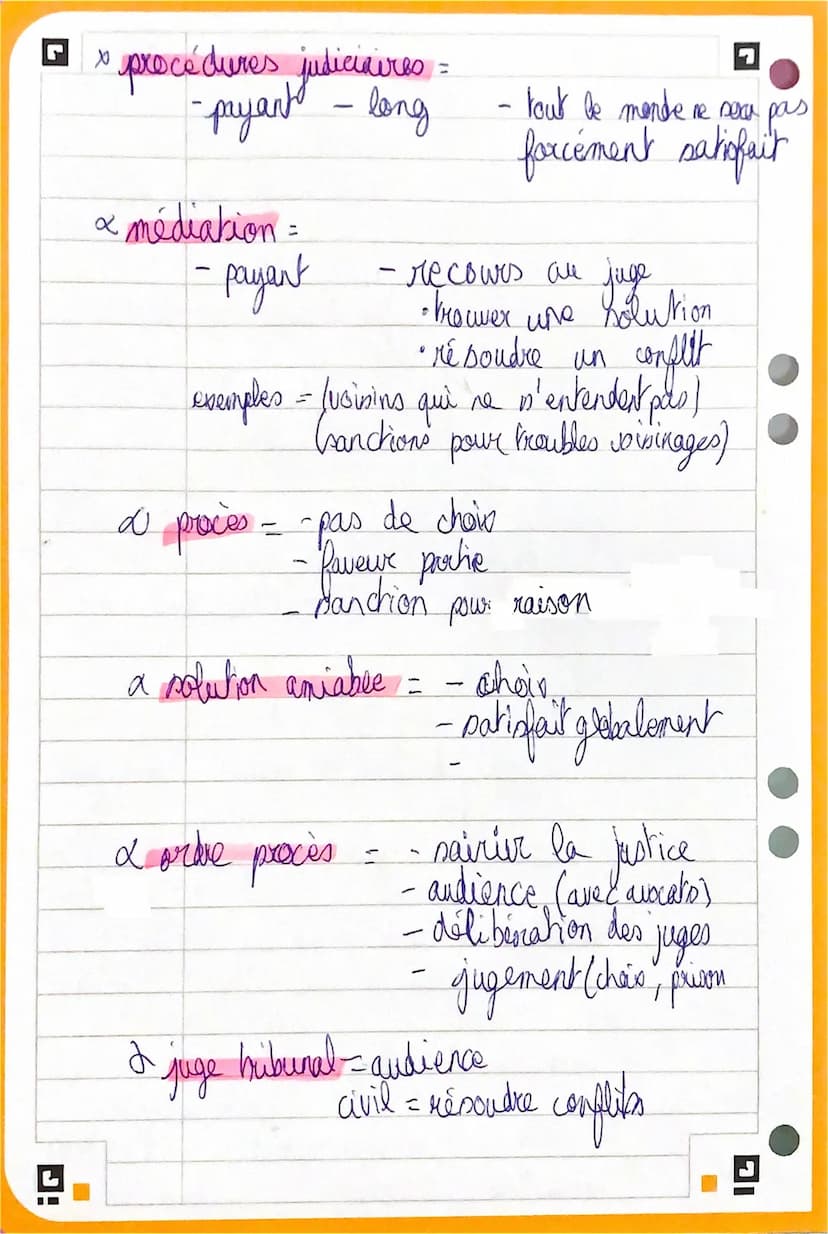 procédures judiciaires =
- payant - long - tout le monde ne sera pas
forcément satisfait
médiation =
- payant - recours au juge
• trouver une solution
• résoudre un conflit
exemples = (voisins qui ne s'entendent pas)
(sanctions pour troubles voisinages)
procès = - pas de choix
- faveur partie
- sanction pour raison
solution amiable = - choix
- satisfait globalement
-
ordre procès = - saisir la justice
- audience (avec avocats)
- délibération des juges
- jugement (choix, prison
juge tribunal = audience
civil = résoudre conflits